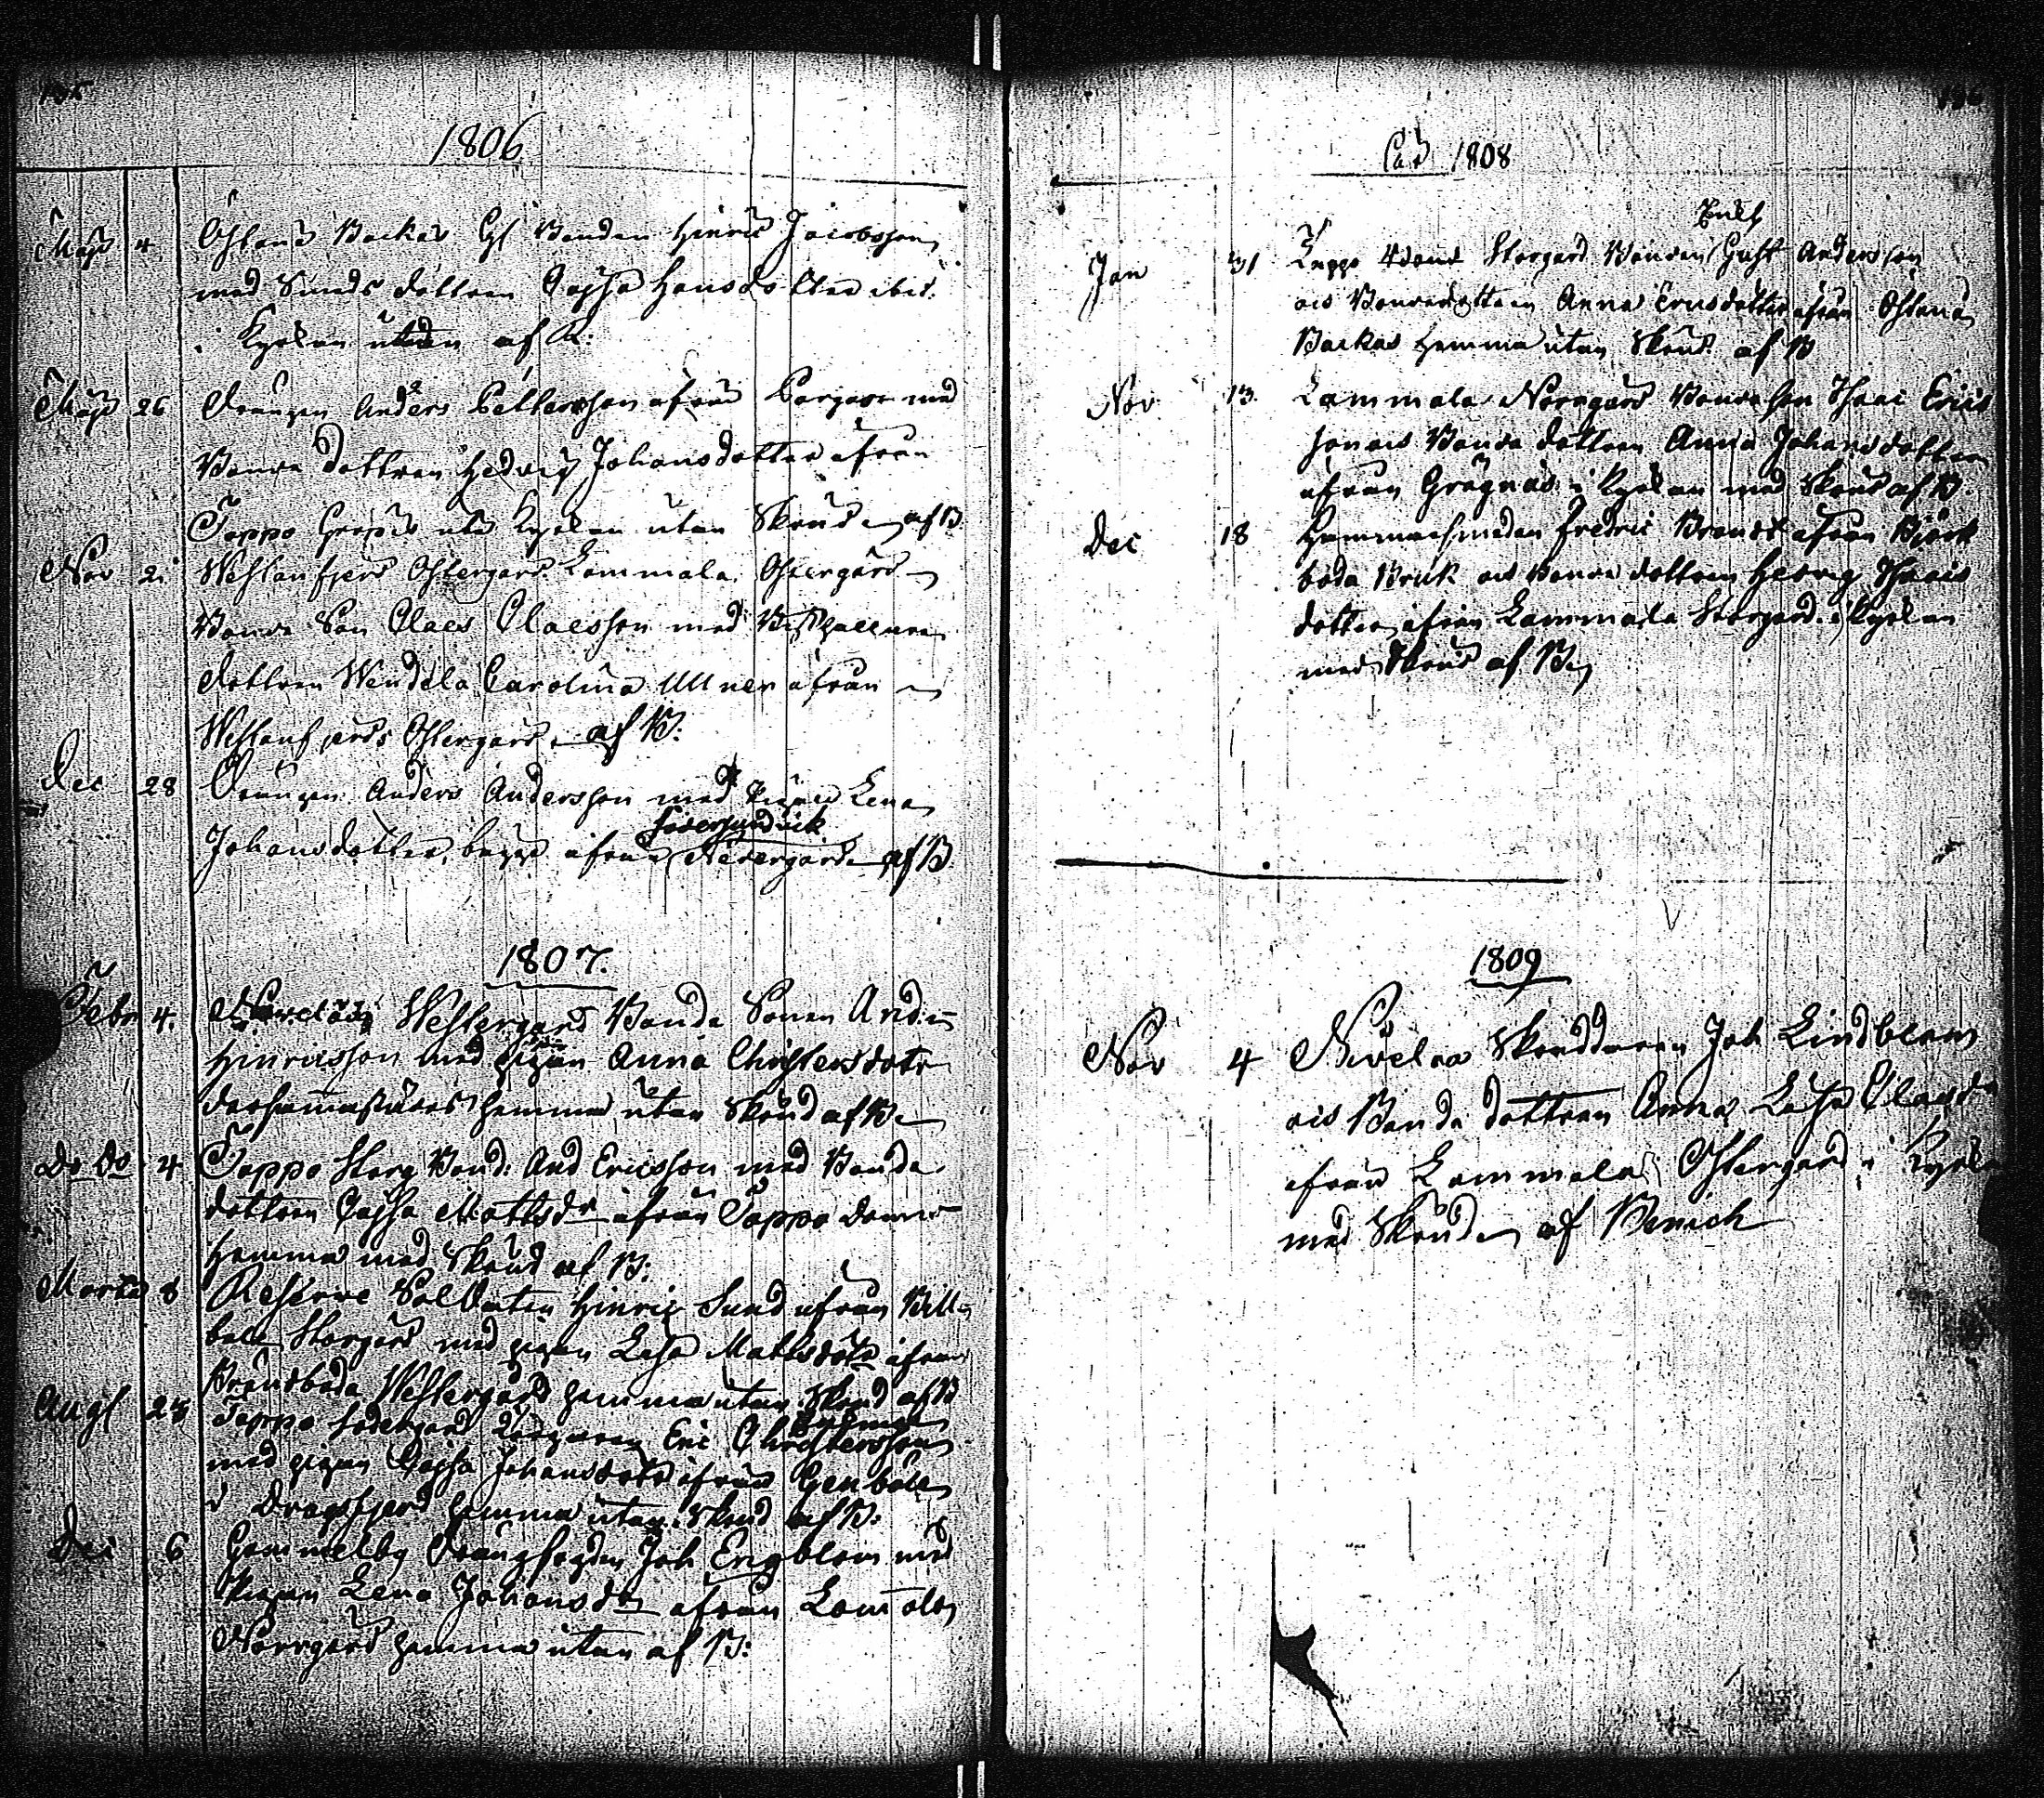 1806
Maji 4 Östanå Backas Bonden Hinric Jacobsson
med Sunds dottren Cajsa Hansdotter ibid.
i Kyrkan utan af B:
Maji 26 Drängen Anders Pettersson ifrån Pargas med
Bonde dottren Hedvig Johansdotter ifrån
Tappo utan Skrud af B.
Nov 2 Westanfjerd Östergård Lammala Östergård
Bonde Son Claes Claesson med
dottren Wendela Carolina Ullner ifrån
Westanfjerds Östergård af B:
Dec 28 Drängen Anders Andersson med Pigan Lena
Södersundvik
Johansdotter, begge ifrån Nedergård af B.
1807.
Febr 4. Westergård Bonde Sonen And:
Hinricsson med pigan Anna Christersdotr
hemma utan Skrud af B.
Do Do 4 Tappo Storg Bond: And Ericsson med Bonde
dottren Cajsa Mattsdr ifrån Tappo
hemma med Skrud af B:
Martii 8 Reserve Soldaten Hinric Sund ifrån Bill
böle Storgård med pigan Lisa Mattsdotr ifrån
Westergård hemma utan Skrud af B
Augl 23 Tappo Södergård Eric Christersson
med pigan Cajsa Johansdotr ifrån Genböle
i Dragsfjerd hemma utan Skrud af B:
Dec 6 Gammelby Joh Engblom med
Pigan Lena Johansdr ifrån Lam̄ala
Norrgård hemma utan af B:
1808
Jan 31 Storgård Bonden Gust Andersson
ock Bondedottren Anna Ersdotter ifrån Östanå
Backas hemma utan Skrud af B
Nov 13 Lammala Norrgård Bonde Son Isaac Erics
son ock Bonde dottren Anna Johansdotter
ifrån Grägnäs i Kyrkan med Skrud af B.
Dec 18 Hammarsmeden Fredric Brandt ifrån Björk
boda Bruk ock Bonde dottren Hedvig Isaacs
dotter ifrån Lammala Storgård i Kyrkan
med Skrud af B
1809
Nov 4 Nivelax Skräddaren Joh Lindblom
ock Bonde dottren Anna Lisa Clasdr
ifrån Lammala Östergård i Kyrkan
med Skrud af Benich